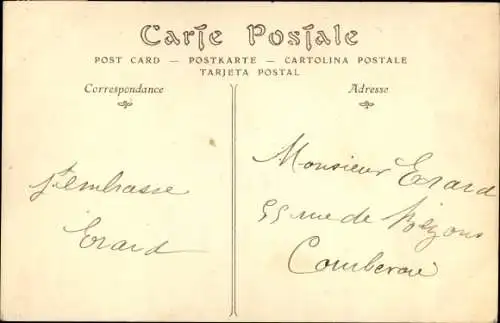 Carte Postale
POST CARD — POSTKARTE — CARTOLINA POSTALE
TARJETA POSTAL
Correspondance
Adresse
j'embrasse
Erard
Monsieur Erard
55 rue de Bezons
Courbevoie